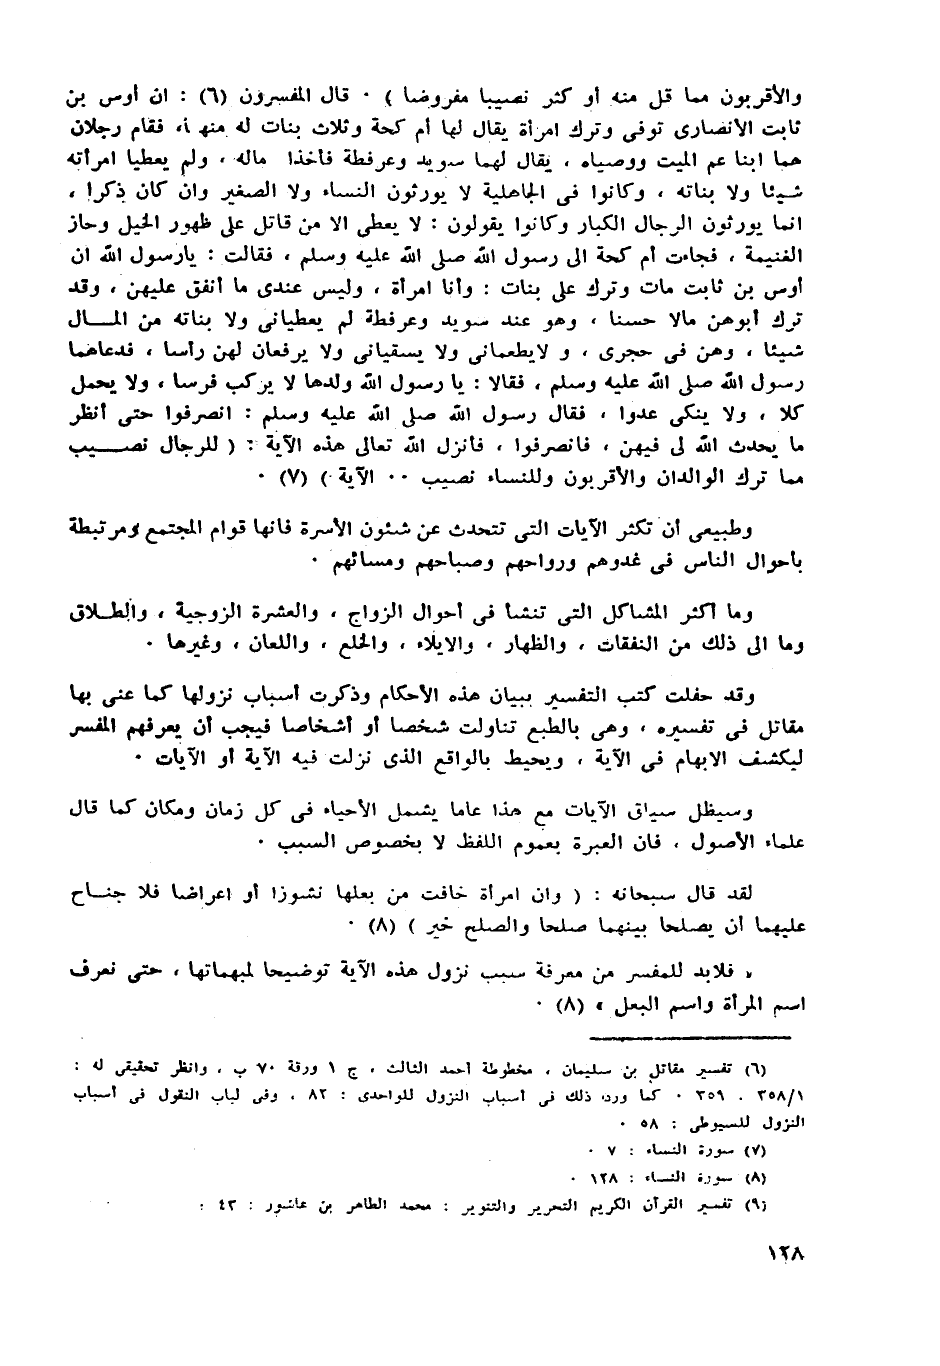 والأقربون مما قل منه أو كثر نصيبا مفروضا ) ٠ قال المفسرون (٦) : ان أوس بن
ثابت الأنصارى توفى وترك امرأة يقال لها أم كحة وثلاث بنات له منها، فقام رجلان
هما ابنا عم الميت ووصياه ، يقال لهما سويد وعرفطة فأخذا ماله ، ولم يعطيا امرأته
شيئا ولا بناته ، وكانوا فى الجاهلية لا يورثون النساء ولا الصغير وان كان ذكرا ،
انما يورثون الرجال الكبار وكانوا يقولون : لا يعطى الا من قاتل على ظهور الخيل وحاز
الغنيمة ، فجاءت أم كحة الى رسول الله صلى الله عليه وسلم ، فقالت : يارسول الله ان
أوس بن ثابت مات وترك على بنات : وأنا امرأة ، وليس عندى ما أنفق عليهن ، وقد
ترك أبوهن مالا حسنا ، وهو عند سويد وعرفطة لم يعطيانى ولا بناته من المـــال
شيئا ، وهن فى حجرى ، و لايطعمانى ولا يسقيانى ولا يرفعان لهن رأسا ، فدعاهما
رسول الله صلى الله عليه وسلم ، فقالا : يا رسول الله ولدها لا يركب فرسا ، ولا يحمل
كلا ، ولا ينكى عدوا ، فقال رسول الله صلى الله عليه وسلم : انصرفوا حتى أنظر
ما يحدث الله لى فيهن ، فانصرفوا ، فأنزل الله تعالى هذه الآية : ( للرجال نصـــيب
مما ترك الوالدان والأقربون وللنساء نصيب ٠٠ الآية ) (٧) ٠
وطبيعى أن تكثر الآيات التى تتحدث عن شئون الأسرة فانها قوام المجتمع ومرتبطة
بأحوال الناس فى غدوهم ورواحهم وصباحهم ومسائهم ٠
وما أكثر المشاكل التى تنشأ فى أحوال الزواج ، والعشرة الزوجية ، والطــلاق
وما الى ذلك من النفقات ، والظهار ، والايلاء ، والخلع ، واللعان ، وغيرها ٠
وقد حفلت كتب التفسير ببيان هذه الأحكام وذكرت أسباب نزولها كما عنى بها
مقاتل فى تفسيره ، وهى بالطبع تناولت شخصا أو أشخاصا فيجب أن يعرفهم المفسر
ليكشف الابهام فى الآية ، ويحيط بالواقع الذى نزلت فيه الآية أو الآيات ٠
وسيظل سياق الآيات مع هذا عاما يشمل الأحياء فى كل زمان ومكان كما قال
علماء الأصول ، فان العبرة بعموم اللفظ لا بخصوص السبب ٠
لقد قال سبحانه : ( وان امرأة خافت من بعلها نشوزا أو اعراضا فلا جنــاح
عليهما أن يصلحا بينهما صلحا والصلح خير ) (٨) ٠
« فلابد للمفسر من معرفة سبب نزول هذه الآية توضيحا لمبهماتها ، حتى نعرف
اسم المرأة واسم البعل » (٨) ٠
(٦) تفسير مقاتل بن سليمان ، مخطوطة أحمد الثالث ، ج ١ ورقة ٧٠ ب ، وانظر تحقيقى له :
٣٥٨/١ ، ٣٥٩ ٠ كما ورد ذلك فى أسباب النزول للواحدى : ٨٢ ، وفى لباب النقول فى أسباب
النزول للسيوطى : ٥٨ ٠
(٧) سورة النساء : ٧ ٠
(٨) سورة النساء : ١٢٨ ٠
(٩) تفسير القرآن الكريم التحرير والتنوير : محمد الطاهر بن عاشور : ٤٣ ٠
١٢٨